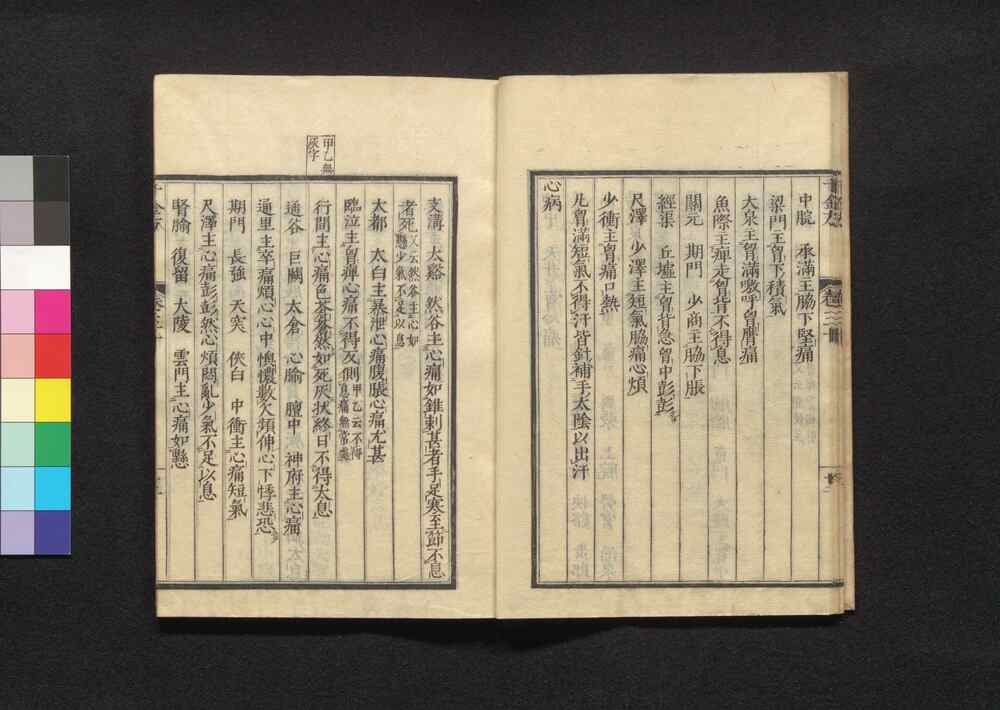 中脘 承滿主脇下堅痛
梁門主胷下積氣
大泉主胷滿嗷呼胷膺痛
魚際主痺走胷背不得息
關元 期門 少商主脇下脹
經渠 丘墟主胷背急胷中彭彭
尺澤 少澤主短氣脇痛心煩
少衝主胷痛口熱
凡胷滿短氣不得汗皆針補手太陰以出汗
心病
支溝 太谿 然谷主心痛如錐刺甚者手足寒至節不息
者死又云然谷主心如懸少氣不足以息
大都 太白主暴泄心痛腹脹心痛尤甚
甲乙無灰字
臨泣主胷痺心痛不得反側甲乙云不得息痛無常處
行間主心痛色蒼蒼然如死灰狀終日不得太息
通谷 巨闕 太倉 心腧 膻中 神府主心痛
通里主卒痛煩心心中懊憹數欠頻伸心下悸悲恐
期門 長強 天突 俠白 中衝主心痛短氣
尺澤主心痛彭彭然心煩悶亂少氣不足以息
腎腧 復留 大陵 雲門主心痛如懸